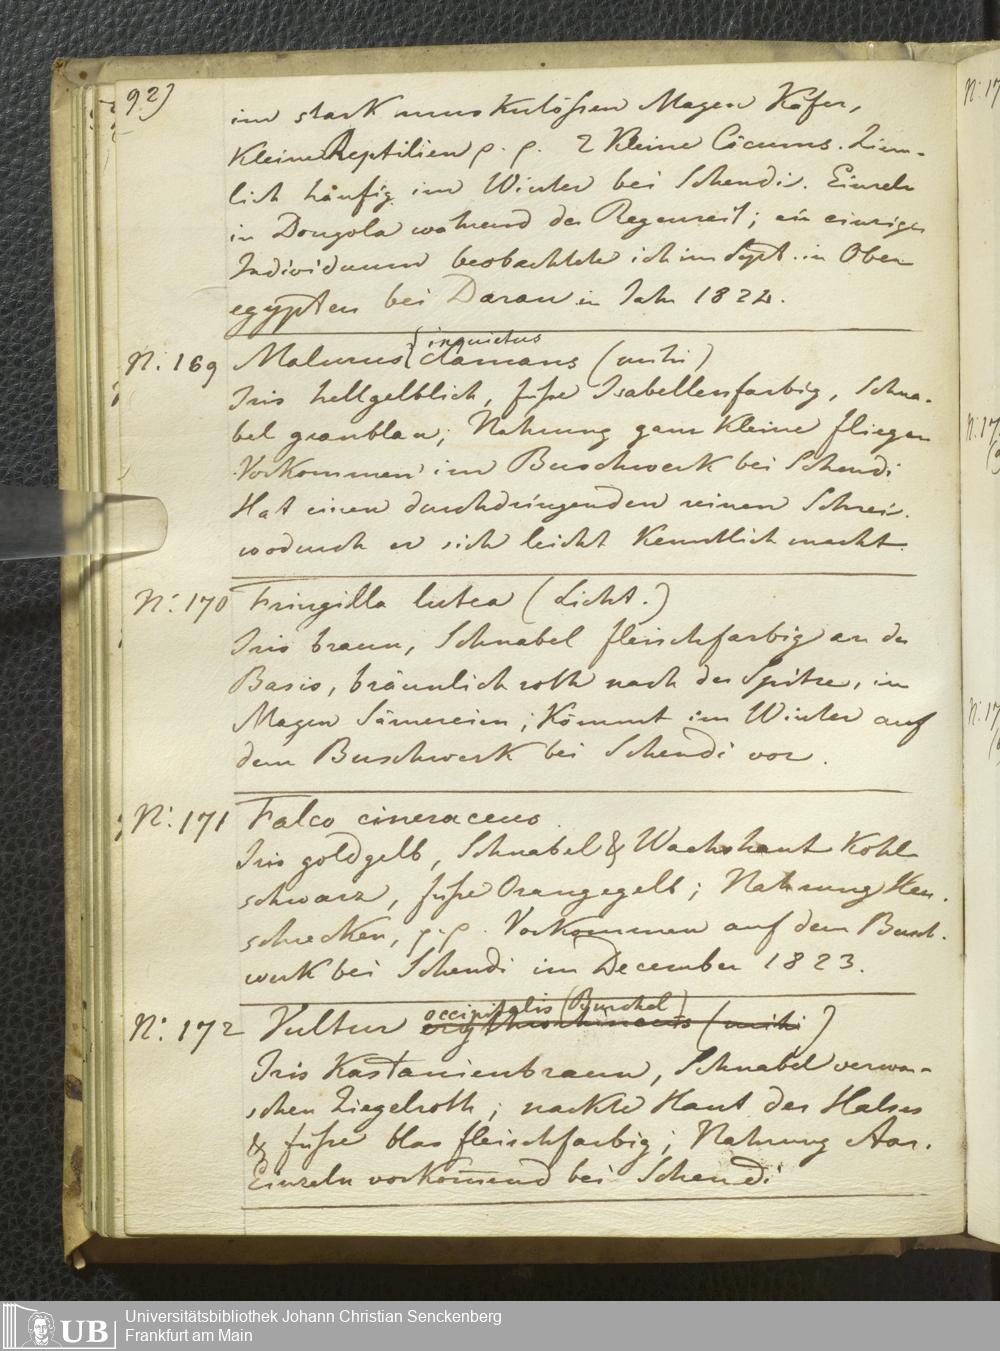 92)
im stark muskulößen Magen Käfer,
Kleine Reptilien p. p. 2 Kleine Cöcums. Ziem-
lich häufig im Winter bei Schendi. Einzeln
in Dongola während der Regenzeit; ein einziges
Individuum beobachtete ich im Sept. in Ober
egypten bei Darau in Jahr 1824.
N: 169 Malurus { inquietus
clamans (mihi)
Iris hellgelblich, füße Isabellenfarbig, Schna-
bel graublau; Nahrung ganz Kleine fliegen
Vorkommen im Buschwerk bei Schendi
Hat einen durchdringenden reinen Schrei.
wodurch er sich leicht Kenntlich macht.
N: 170 Fringilla lutea (Licht.)
Iris braun, Schnabel fleischfarbig an der
Basis, bräunlich roth nach der Spitze, im
Magen Sämereien; Kömmt im Winter auf
dem Buschwerk bei Schendi vor.
N: 171 Falco cineraceus
Iris goldgelb, Schnabel & Wachshaut Kohl
schwarz, füße Orangegelb; Nahrung Heu-
schrecken, p. p. Vorkommen auf dem Busch-
werk bei Schendi im December 1823.
N: 172 Vultur occipitalis (Burchel)
(mihi)
Iris Kastanienbraun, Schnabel verwa-
schen Ziegelroth; nackte Haut des Halses
& füße blas fleischfarbig; Nahrung Aas.
Einzeln vorkom̅end bei Schendi
N: 17
N: 17
N: 17
Universitätsbibliothek Johann Christian Senckenberg
Frankfurt am Main
UB